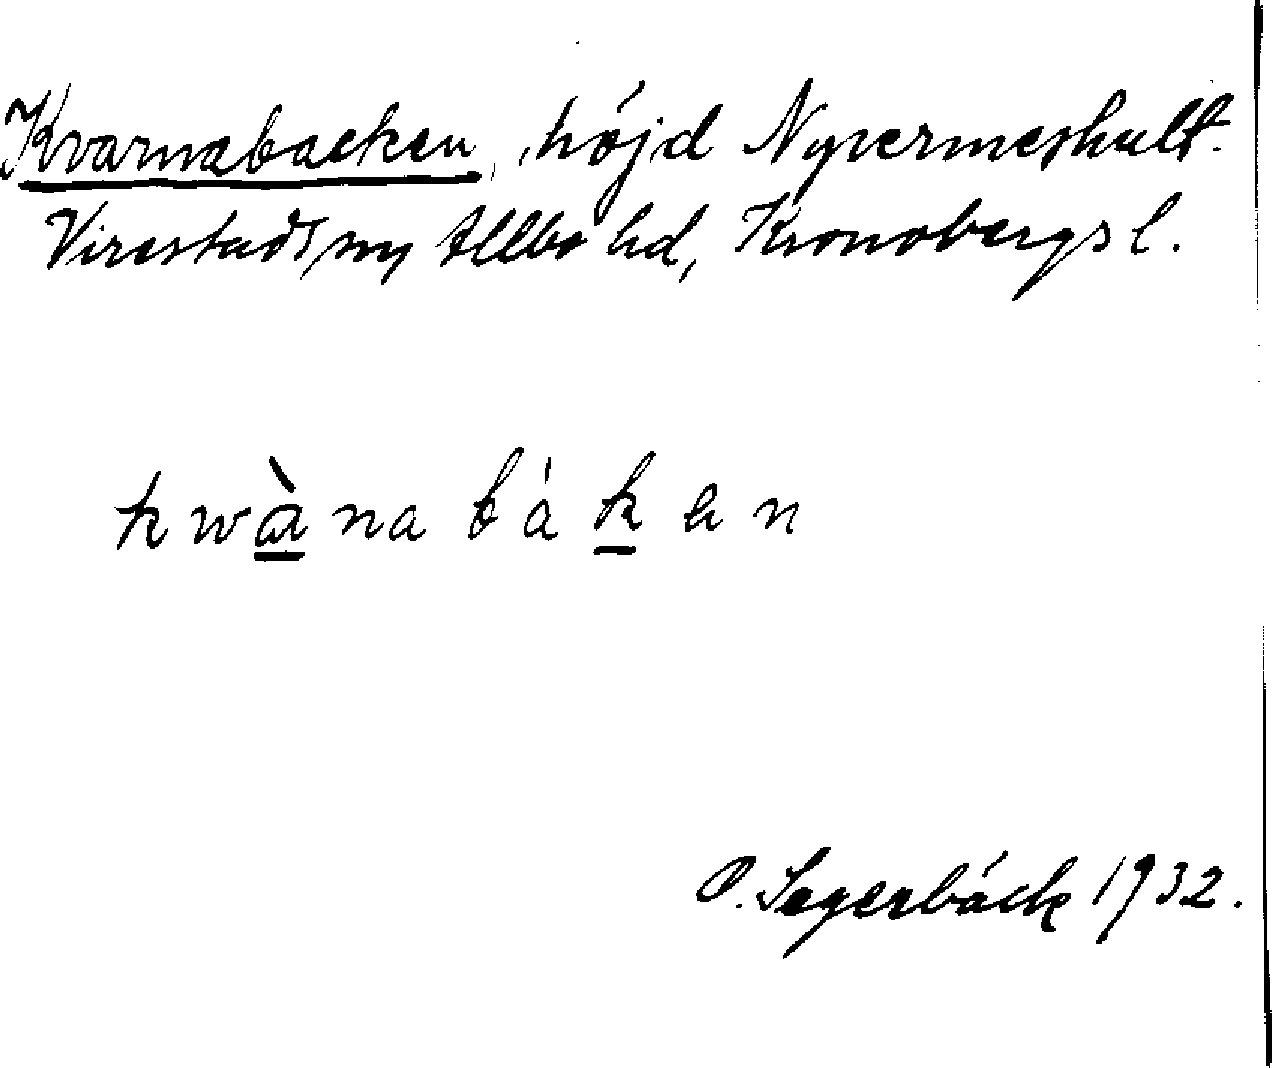 Kvarnabacken, höjd Nyvermeshult
Virestads sn, Allbo hd, Kronobergs l.
kwànabáken
P. Segerbäck 1932.